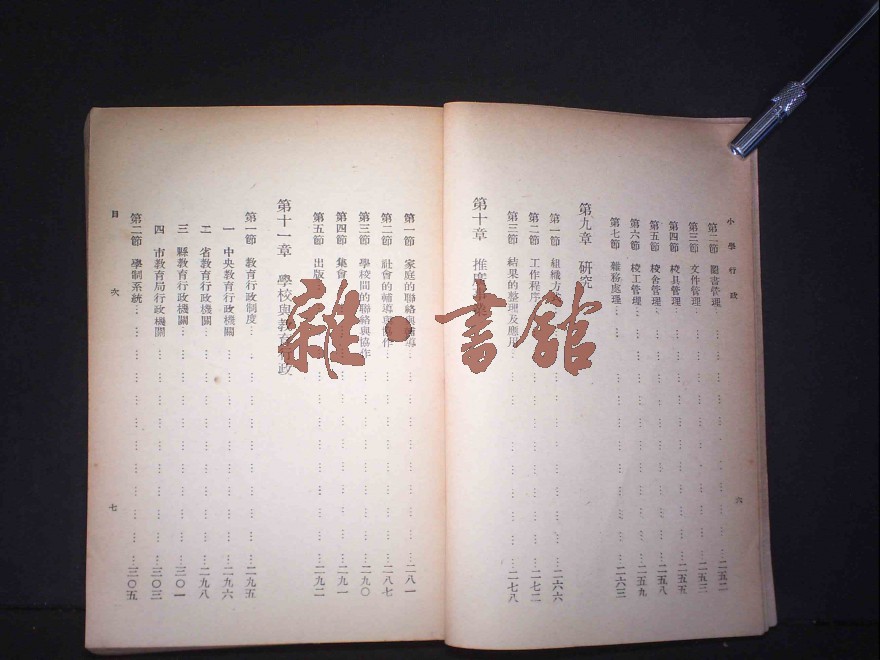 小學行政
第二節 圖書管理 二五二
第三節 文件管理 二五三
第四節 校具管理 二五五
第五節 校舍管理 二五八
第六節 校工管理 二五九
第七節 雜務處理 二六三
第九章 研究
第一節 組織方 二六六
第二節 工作程序 二七二
第三節 結果的整理及應用 二七八
第十章 推廣事業
六
第一節 家庭的聯絡與輔導 二八一
第二節 社會的輔導與協作 二八七
第三節 學校間的聯絡與協作 二九〇
第四節 集會 二九一
第五節 出版 二九二
第十一章 學校與教育行政
第一節 教育行政制度 二九五
一 中央教育行政機關 二九六
二 省教育行政機關 二九八
三 縣教育行政機關 三〇一
四 市教育局行政機關 三〇三
第二節 學制系統 三〇五
目次
七
雜·書館